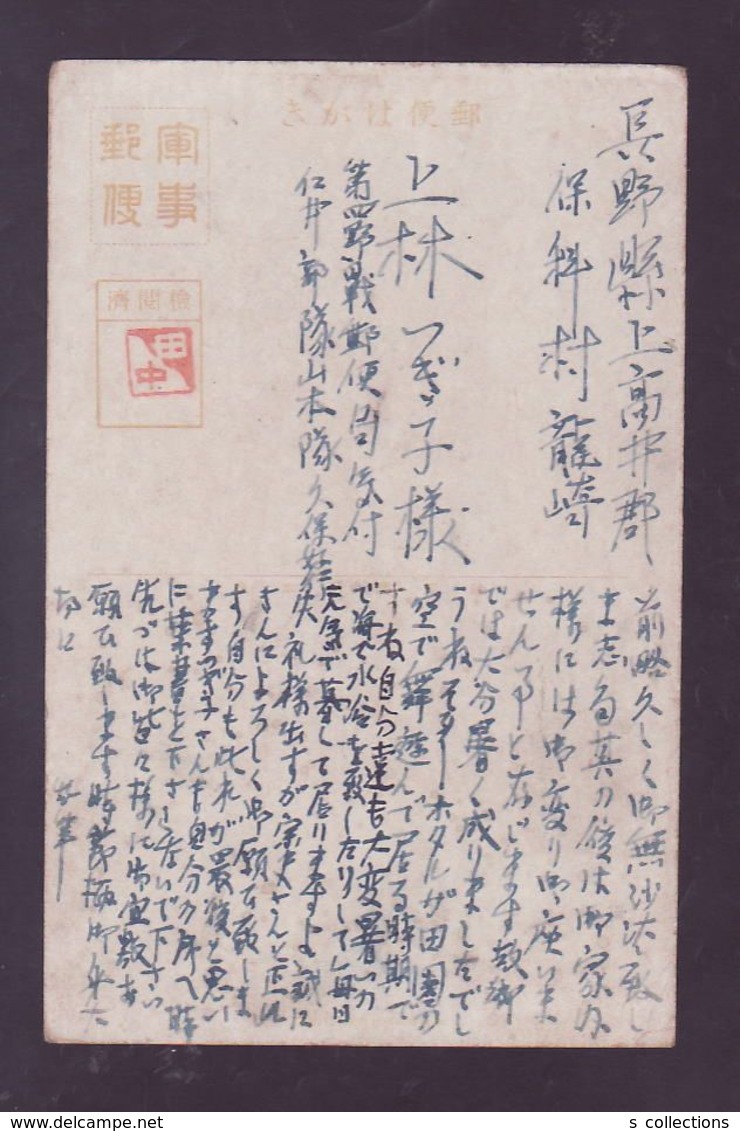 郵便はがき
軍事郵便
検閲済
田中
長野縣上高井郡
保科村龍崎
上林つぎ子様
第四野戰郵便局気付
仁井部隊山本隊久保
前略久しく御無沙汰致し
ま志た其の後は御家内
様には御変り御座いま
せん事と存じます故郷
では大分暑く成りましたでし
うねそしてホタルが田園の
空で舞遊んで居る時期で
すね自分達も大変暑いの
で海で水浴を致したりして毎日
元気で暮して居りますよ誠に
失礼様ですが
さんによろしく御願ひ致しま
す自分も此れが最後と思い
ますつぎ子さんも自分の所へ
に葉書を下さらないで下さい
先づは御皆々様に御宜敷お
願ひ致します時節柄御身大
切に
草々
s collections